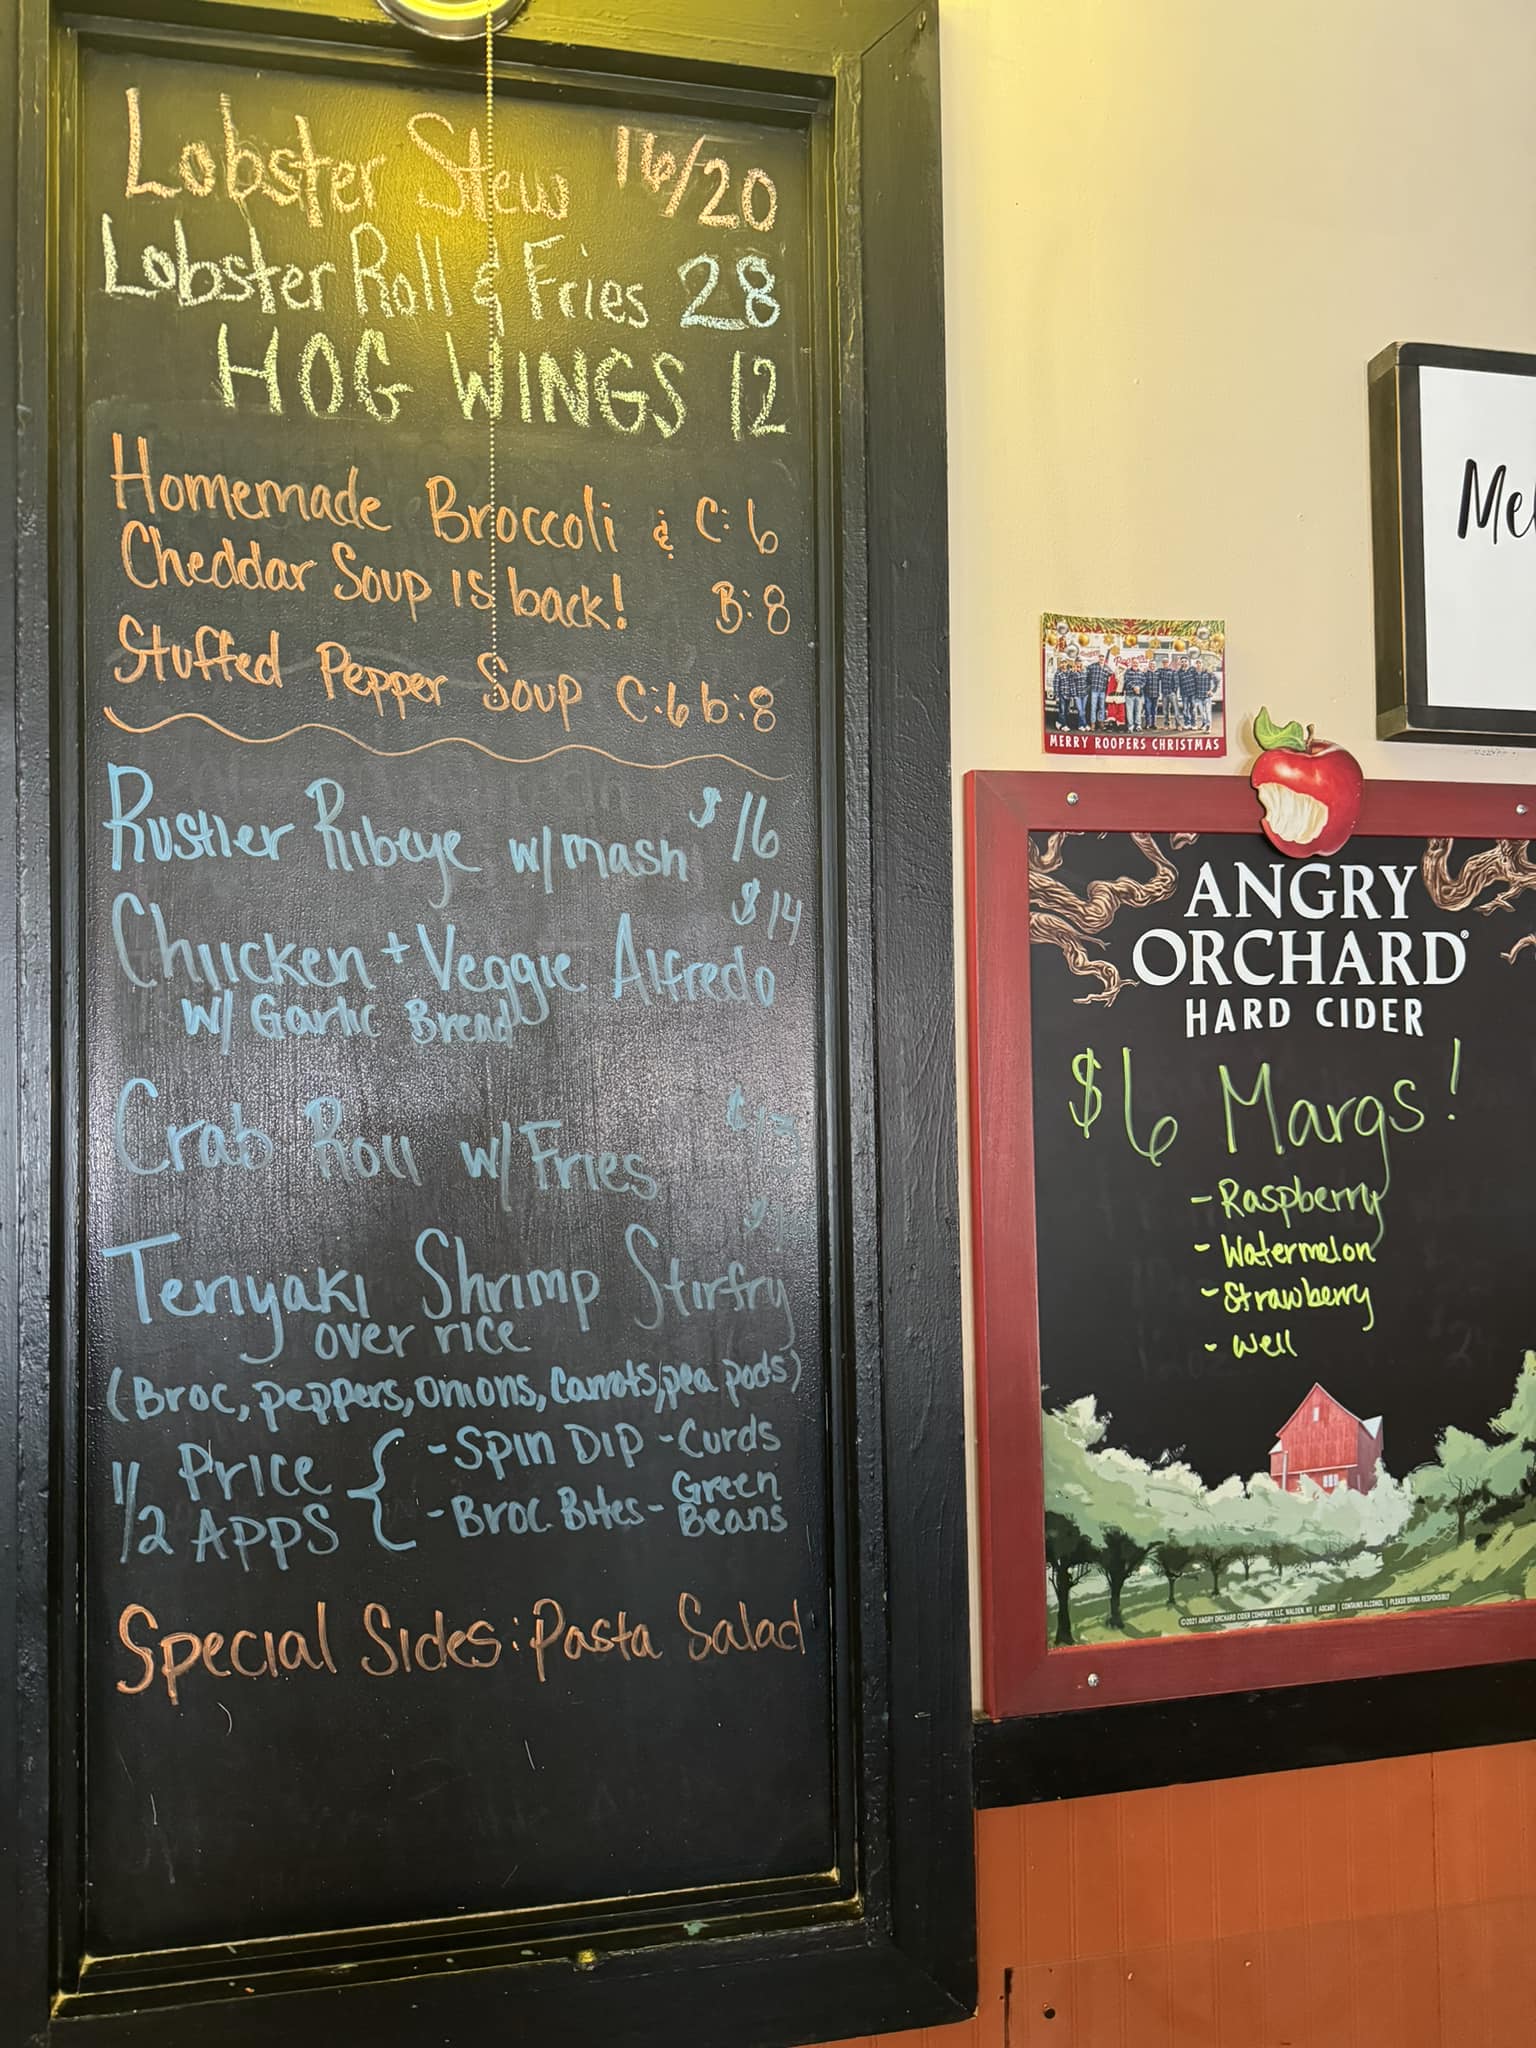 Lobster Stew 16/20
Lobster Roll & Fries 28
HOG WINGS 12
Homemade Broccoli & C: 6
Cheddar Soup is back! B: 8
Stuffed Pepper Soup C: 6 b: 8
Rustler Ribeye w/ mash $16
$14
Chicken + Veggie Alfredo
w/ Garlic Bread
Crab Roll w/ Fries 13
Teriyaki Shrimp Stirfry
over rice
(Broc, peppers, onions, carrots, pea pods)
1/2 Price Apps { - Spin Dip - Curds
- Broc Bites - Green Beans
Special Sides: Pasta Salad
MERRY ROOPERS CHRISTMAS
ANGRY
ORCHARD®
HARD CIDER
$6 Margs!
- Raspberry
- Watermelon
- Strawberry
- Well
©2021 ANGRY ORCHARD CIDER COMPANY, LLC, WALDEN, NY | ABCABV | CONTAINS ALCOHOL | PLEASE DRINK RESPONSIBLY